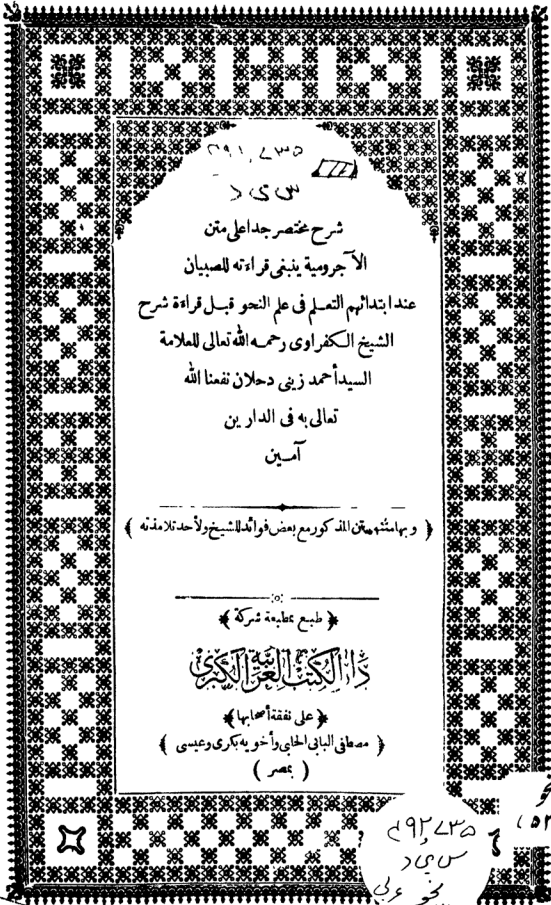 ٤٩١,٧٣٥
س ی د
شرح مختصر جدا على متن
الآجرومية ينبغى قراءته للصبيان
عند ابتدائهم التعلم فى علم النحو قبل قراءة شرح
الشيخ الكفراوى رحمه الله تعالى للعلامة
السيد أحمد زينى دحلان نفعنا الله
تعالى به فى الدارين
آمين
﴿ وبهامشه متن المذكور مع بعض فوائد للشيخ ولأحد تلامذته ﴾
﴿ طبع بمطبعة شركة ﴾
دار الكتب العربية الكبرى
﴿ على نفقة أصحابها ﴾
﴿ مصطفى البابى الحلبى وأخويه بكرى وعيسى ﴾
( بمصر )
٤٩٢,٧٣٥
س ی د
نحو عربي